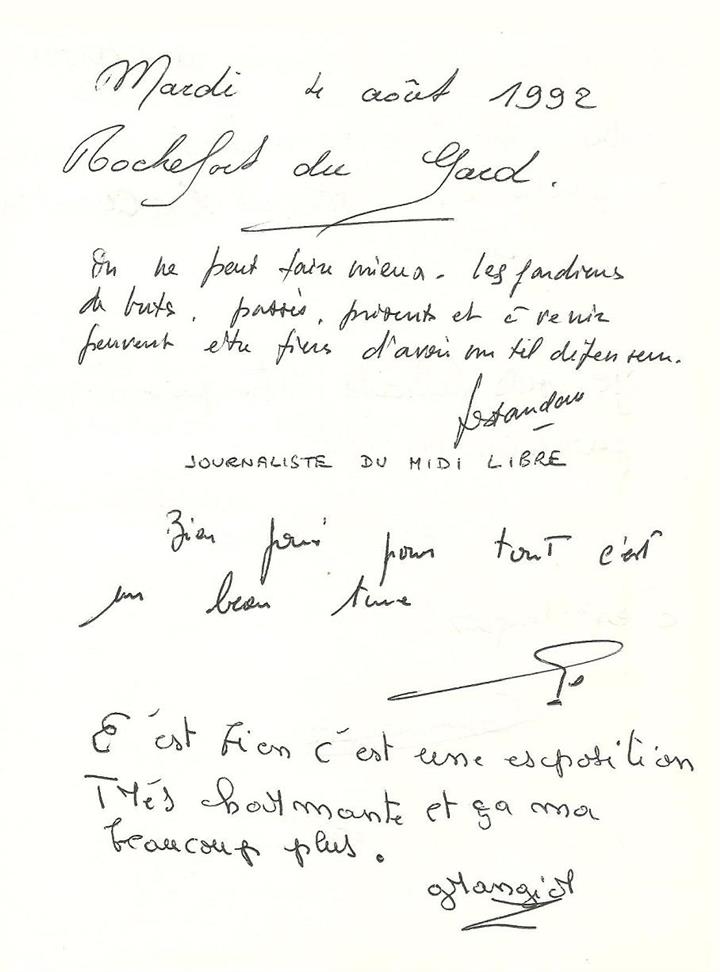 Mardi 4 août 1992
Rochefort du Gard.
On ne peut faire mieux - les gardiens
de buts, passés, présents et à venir
peuvent être fiers d'avoir un tel défenseur.
JOURNALISTE DU MIDI LIBRE
Bien joué pour tout c'est
un beau
C'est bien c'est une exposition
Trés charmante et ça ma
beaucoup plus.